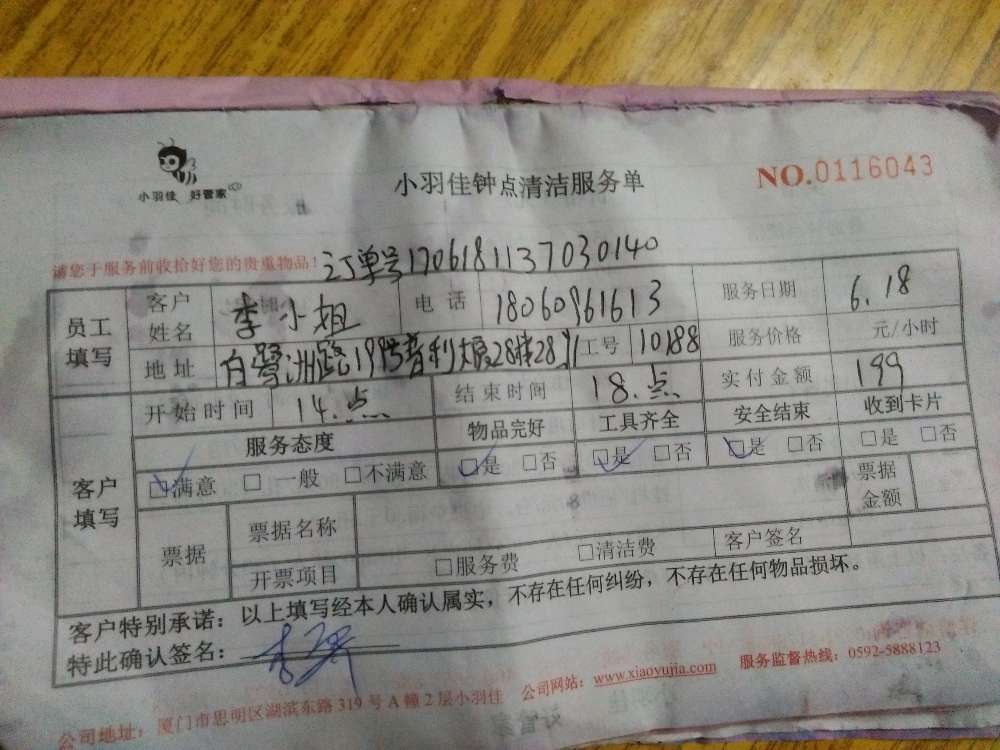 小羽佳 好管家
小羽佳钟点清洁服务单
NO.0116043
请您于服务前收拾好您的贵重物品!
订单号1706181137030140
员工填写
客户姓名 李小姐 电话 18060961613 服务日期 6.18
地址 白鹭洲路19号普利大厦28楼28 工号 10188 服务价格 元/小时
开始时间 14.点 结束时间 18.点 实付金额 199
客户填写
服务态度 物品完好 工具齐全 安全结束 收到卡片
□满意 □一般 □不满意 □是 □否 □是 □否 □是 □否 □是 □否
票据 票据名称 票据金额
开票项目 □服务费 □清洁费 客户签名
客户特别承诺:以上填写经本人确认属实,不存在任何纠纷,不存在任何物品损坏。
特此确认签名:
公司地址:厦门市思明区湖滨东路319号A幢2层小羽佳 公司网站:www.xiaoyujia.com 服务监督热线:0592-5888123